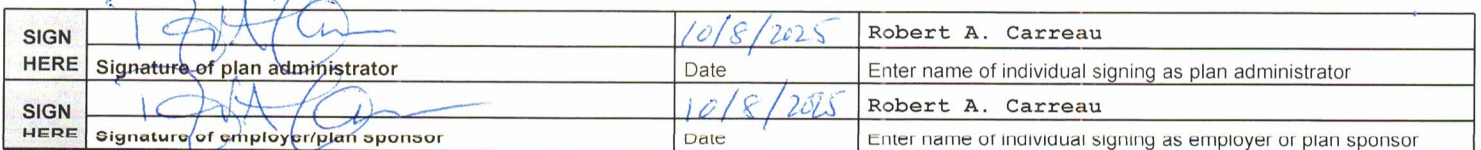 SIGN 10/8/2025 Robert A. Carreau
HERE Signature of plan administrator Date Enter name of individual signing as plan administrator
SIGN 10/8/2025 Robert A. Carreau
HERE Signature of employer/plan sponsor Date Enter name of individual signing as employer or plan sponsor